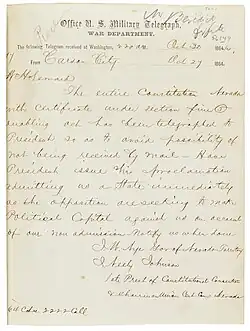 Office U. S. Military Telegraph,
WAR DEPARTMENT.
The following Telegram received at Washington, 2 20 AM. Oct 30 1864.
From Carson City Oct 29 1864.
The entire Constitution Nevada
with certificate under section five
enabling act has been telegraphed to
President so as to avoid possibility of
not being received by mail - Have
President issue his proclamation
admitting us a State immediately
as the opposition are seeking to make
Political Capital against us on account
of our non admission Notify us when done
J. W. Nye Gov of Nevada Territory
J Neely Johnson
late Prest of Constitutional Convention
& Chairman Union Cent Com Nevada